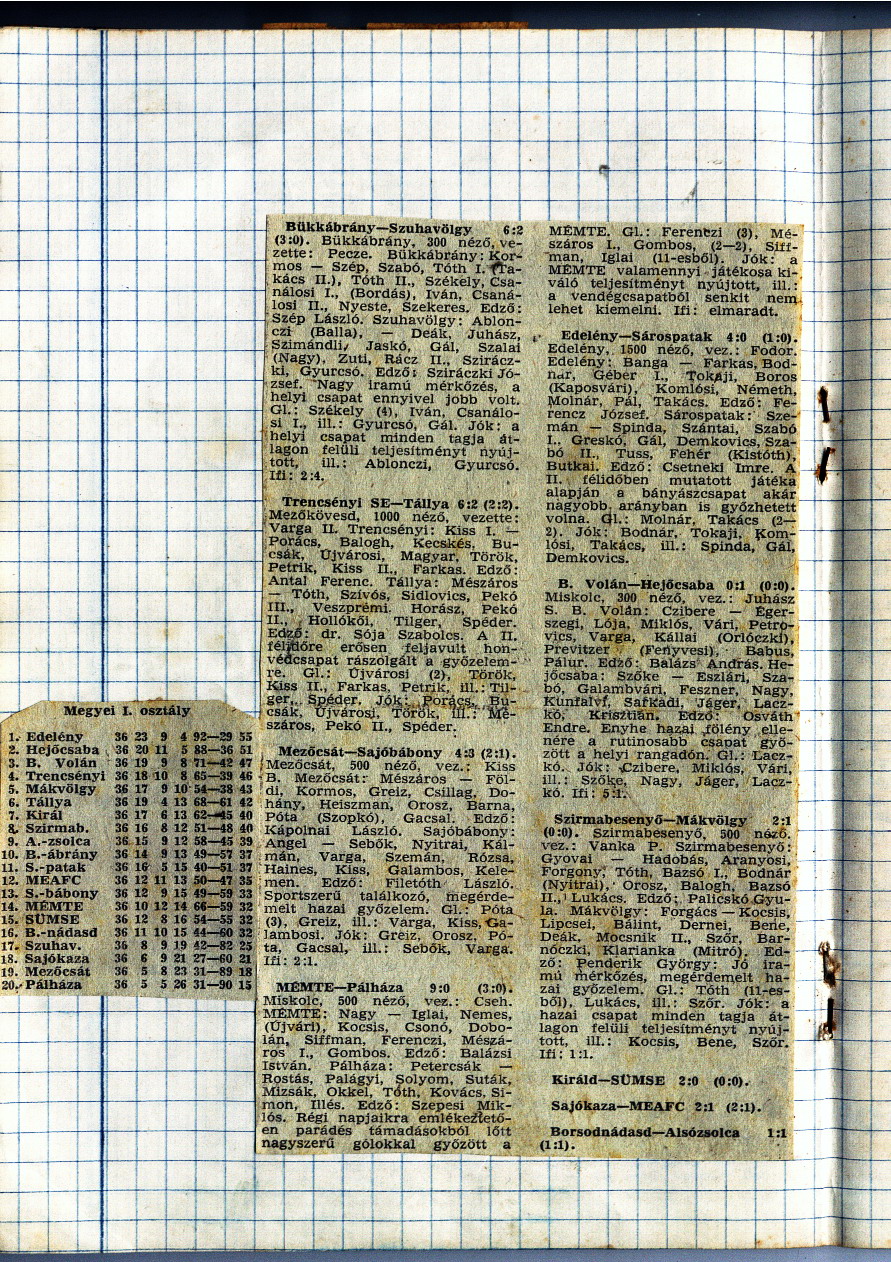 Bükkábrány—Szuhavölgy 6:2
(3:0). Bükkábrány, 300 néző, ve-
zette: Pecze. Bükkábrány: Kor-
mos — Szép, Szabó, Tóth I. (Ta-
kács II.), Tóth II., Székely, Csa-
nálosi I., (Bordás), Iván, Csaná-
losi II., Nyeste, Szekeres. Edző:
Szép László. Szuhavölgy: Ablon-
czi (Balla), — Deák, Juhász,
Szimándli, Jaskó, Gál, Szalai
(Nagy), Zuti, Rácz II., Szirácz-
ki, Gyurcsó. Edző: Sziráczki Jó-
zsef. Nagy iramú mérkőzés, a
helyi csapat ennyivel jobb volt.
Gl.: Székely (4), Iván, Csanálo-
si I., ill.: Gyurcsó, Gál. Jók: a
helyi csapat minden tagja át-
lagon felüli teljesítményt nyúj-
tott, ill.: Ablonczi, Gyurcsó.
Ifi: 2:4.
Trencsényi SE—Tállya 6:2 (2:2).
Mezőkövesd, 1000 néző, vezette:
Varga II. Trencsényi: Kiss I. —
Porács, Balogh, Kecskés, Bu-
csák, Újvárosi, Magyar, Török,
Petrik, Kiss II., Farkas. Edző:
Antal Ferenc. Tállya: Mészáros
— Tóth, Szívós, Sidlovics, Pekó
III., Veszprémi, Horász, Pekó
II., Hollókői, Tilger, Spéder.
Edző: dr. Sója Szabolcs. A II.
félidőre erősen feljavult hon-
védcsapat rászolgált a győzelem-
re. Gl.: Újvárosi (2), Török,
Kiss II., Farkas, Petrik, ill.: Til-
ger, Spéder. Jók: Porács, Bu-
csák, Újvárosi, Török, ill.: Mé-
száros, Pekó II., Spéder.
Mezőcsát—Sajóbábony 4:3 (2:1).
Mezőcsát, 500 néző, vez.: Kiss
B. Mezőcsát: Mészáros — Föl-
di, Kormos, Greiz, Csillag, Do-
hány, Heiszman, Orosz, Barna,
Póta (Szopkó), Gacsal. Edző:
Kápolnai László. Sajóbábony:
Angel — Sebők, Nyitrai, Kál-
mán, Varga, Szemán, Rózsa,
Haines, Kiss, Galambos, Kele-
men. Edző: Filetóth László.
Sportszerű találkozó, megérde-
melt hazai győzelem. Gl.: Póta
(3), Greiz, ill.: Varga, Kiss, Ga-
lambosi. Jók: Greiz, Orosz, Pó-
ta, Gacsal, ill.: Sebők, Varga.
Ifi: 2:1.
MÉMTE—Pálháza 9:0 (3:0).
Miskolc, 500 néző, vez.: Cseh.
MÉMTE: Nagy — Iglai, Nemes,
(Újvári), Kocsis, Csonó, Dobo-
lán, Siffman, Ferenczi, Mészá-
ros I., Gombos. Edző: Balázsi
István. Pálháza: Petercsák —
Rostás, Palágyi, Solyom, Suták,
Mizsák, Okkel, Tóth, Kovács, Si-
mon, Illés. Edző: Szepesi Mik-
lós. Régi napjaikra emlékeztető-
en parádés támadásokból lőtt
nagyszerű gólokkal győzött a
MÉMTE. Gl.: Ferenczi (3), Mé-
száros I., Gombos, (2—2), Siff-
man, Iglai (11-esből). Jók: a
MÉMTE valamennyi játékosa ki-
váló teljesítményt nyújtott, ill.:
a vendégcsapatból senkit nem
lehet kiemelni. Ifi: elmaradt.
Edelény—Sárospatak 4:0 (1:0).
Edelény, 1500 néző, vez.: Fodor.
Edelény: Banga — Farkas, Bod-
nár, Géber I., Tokaji, Boros
(Kaposvári), Komlósi, Németh,
Molnár, Pál, Takács. Edző: Fe-
rencz József. Sárospatak: Sze-
mán — Spinda, Szántai, Szabó
I., Greskó, Gál, Demkovics, Sza-
bó II., Tuss, Fehér (Kistóth),
Butkai. Edző: Csetneki Imre. A
II. félidőben mutatott játéka
alapján a bányászcsapat akár
nagyobb arányban is győzhetett
volna. Gl.: Molnár, Takács (2—
2). Jók: Bodnár, Tokaji, Kom-
lósi, Takács, ill.: Spinda, Gál,
Demkovics.
B. Volán—Hejőcsaba 0:1 (0:0).
Miskolc, 300 néző, vez.: Juhász
S. B. Volán: Czibere — Eger-
szegi, Lója, Miklós, Vári, Petro-
vics, Varga, Kállai (Orlóczki),
Previtzer (Fenyvesi), Babus,
Pálur. Edző: Balázs András. He-
jőcsaba: Szőke — Eszlári, Sza-
bó, Galambvári, Feszner, Nagy,
Kunfalvi, Safkádi, Jáger, Lacz-
kó, Krisztián. Edző: Osváth
Endre. Enyhe hazai fölény elle-
nére a rutinosabb csapat győ-
zött a helyi rangadón. Gl.: Lacz-
kó. Jók: Czibere, Miklós, Vári,
ill.: Szőke, Nagy, Jáger, Lacz-
kó. Ifi: 5:1.
Szirmabesenyő—Mákvölgy 2:1
(0:0). Szirmabesenyő, 500 néző,
vez.: Vanka P. Szirmabesenyő:
Gyovai — Hadobás, Aranyosi,
Forgony, Tóth, Bazsó I., Bodnár
(Nyitrai), Orosz, Balogh, Bazsó
II., Lukács. Edző: Palicskó Gyu-
la. Mákvölgy: Forgács — Kocsis,
Lipcsei, Bálint, Dernei, Bene,
Deák, Mocsnik II., Szőr, Bar-
nóczki, Klarianka (Mitró). Ed-
ző: Penderik György: Jó ira-
mú mérkőzés, megérdemelt ha-
zai győzelem. Gl.: Tóth (11-es-
ből), Lukács, ill.: Szőr. Jók: a
hazai csapat minden tagja át-
lagon felüli teljesítményt nyúj-
tott, ill.: Kocsis, Bene, Szőr.
Ifi: 1:1.
Királd—SÜMSE 2:0 (0:0).
Sajókaza—MEAFC 2:1 (2:1).
Borsodnádasd—Alsózsolca 1:1
(1:1).
Megyei I. osztály
1. Edelény 36 23 9 4 92—29 55
2. Hejőcsaba 36 20 11 5 88—36 51
3. B. Volán 36 19 9 8 71—42 47
4. Trencsényi 36 18 10 8 65—39 46
5. Mákvölgy 36 17 9 10 54—38 43
6. Tállya 36 19 4 13 68—61 42
7. Királ 36 17 6 13 62—45 40
8. Szirmab. 36 16 8 12 51—48 40
9. A.-zsolca 36 15 9 12 58—45 39
10. B.-ábrány 36 14 9 13 49—57 37
11. S.-patak 36 16 5 15 40—51 37
12. MEAFC 36 12 11 13 50—47 35
13. S.-bábony 36 12 9 15 49—59 33
14. MÉMTE 36 10 12 14 66—59 32
15. SÜMSE 36 12 8 16 54—55 32
16. B.-nádasd 36 11 10 15 44—60 32
17. Szuhav. 36 8 9 19 42—82 25
18. Sajókaza 36 6 9 21 27—60 21
19. Mezőcsát 36 5 8 23 31—89 18
20. Pálháza 36 5 5 26 31—90 15